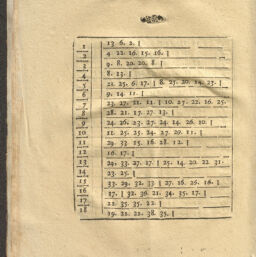 13. 6. 2. |
1 4 22. 16. 15. 16. |
2 9. 8. 20. 20. 8. |
3 8. 13. |
4 21. 25. 6. 17. | 8. 25. 20. 14. 23. |
5 9. 14. 11. |
6 23. 27. 21. 11. | 10. 27. 22. 16. 25.
7 28. 21. 17. 27. 13. |
8 24. 26. 23. 27. 24. 14. 26. 10. |
9 11. 25. 25. 24. 27. 29. 11. |
10 29. 33. 15. 16. 28. 12. |
11 16. 17. |
12 24. 33. 27. 17. | 25. 14. 20. 22. 31.
13 23. 25. |
14 33. 29. 32. 33. | 27. 16. 26. 16. |
15 17. | 32. 36. 21. 34. 35. 17. |
16 22. 35. 35. 22. |
17 19. 21. 21. 38. 35. |
18